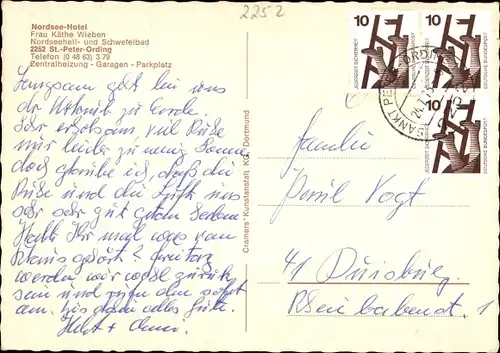 2252
Nordsee-Hotel
Frau Käthe Wieben
Nordseeheil- und Schwefelbad
2252 St.-Peter-Ording
Telefon (0 48 63) 3 79
Zentralheizung - Garagen - Parkplatz
Langsam geht bei uns
der Urlaub zu Ende.
Sehr erholsam, viel Ruhe
nur leider zu wenig Sonne,
doch glaube ich, daß die
Ruhe und die Luft uns
sehr sehr gut getan haben.
Habt Ihr mal was vom
Haus gehört?
werden wir wohl zurück
sein und rufen dann sofort
an. bis dahin alles Gute.
Cramers Kunstanstalt KG, Dortmund
10 10
JEDERZEIT SICHERHEIT DEUTSCHE BUNDESPOST
10
JEDERZEIT SICHERHEIT DEUTSCHE BUNDESPOST
SANKT PETER-ORDING
Familie
Vogt
41 Duisburg
1